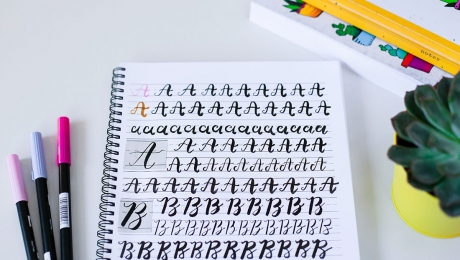 A A A A A A A A A A
A A A A A A A A A A
a a a a a a a a a a a a a a a
A A A A A A A A
A A A A A A A A
A A A A A A A A A A A
B B B B B B B B B
B B B B B B B B B
B B B B B B B B B B B B B